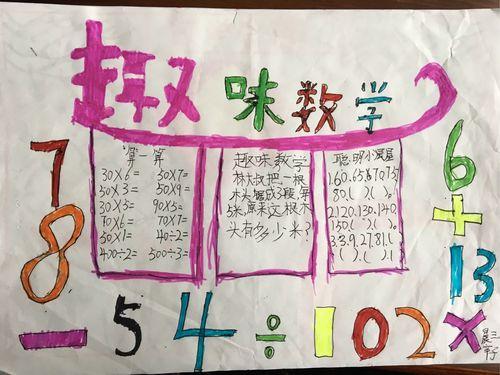 趣味数学
算一算
30×6= 50×7=
50×3= 50×9=
30×5= 90×5=
70×6= 70×7=
50×1= 40÷2=
400÷2= 500÷3=
趣味数学
林大叔把一根
木头锯成3段,每
5米,原来这根木
头有多少米?
聪明小漠屋
1.60.65.70.75
80.( )( )。
2.120.130.140
150( )( )。
3.3.9.27.81.(
)( ).( )
7
8
6
+
13
- 5 4 ÷ 1 0 2 ×
三